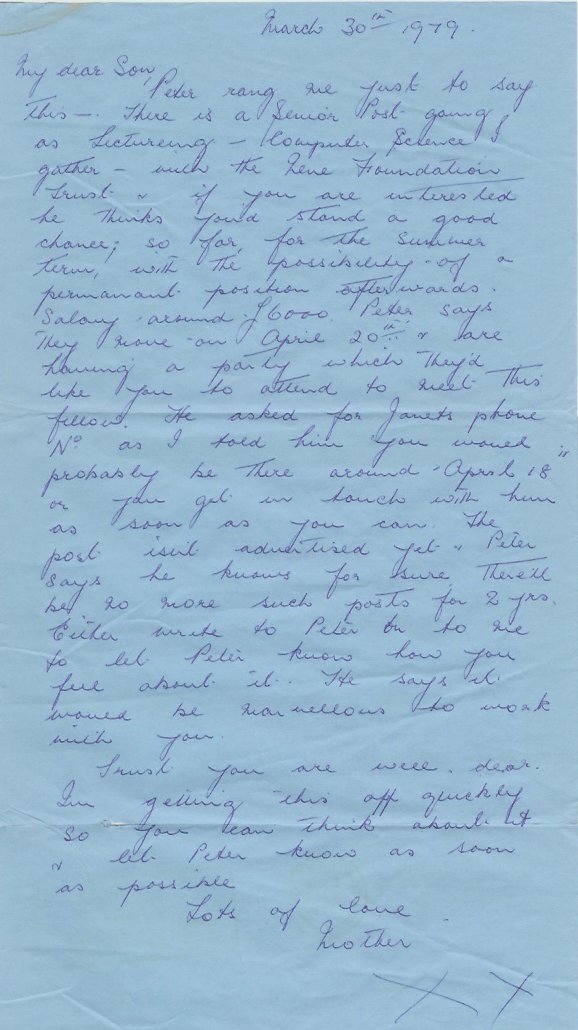 March 30th 1979.
My dear Son,
Peter rang me just to say
this —. There is a Senior Post going
as Lectureing — Computer Science I
gather — with the Nene Foundation
Trust & if you are interested
he thinks you'd stand a good
chance; so far, for the Summer
term, with the possibility of a
permanant position afterwards.
Salary around £6000. Peter says
they move on April 20th & are
having a party which they'd
like you to attend to meet this
fellow. He asked for Janets phone
No as I told him you would
probably be there around April 18"
or you get in touch with him
as soon as you can. The
post isn't advertised yet & Peter
says he knows for sure there'll
be no more such posts for 2 yrs.
Either write to Peter or to me
to let Peter know how you
feel about it. He says it
would be marvellous to work
with you.
Trust you are well, dear.
I'm getting this off quickly
so you can think about it
& let Peter know as soon
as possible
Lots of love.
Mother
X X